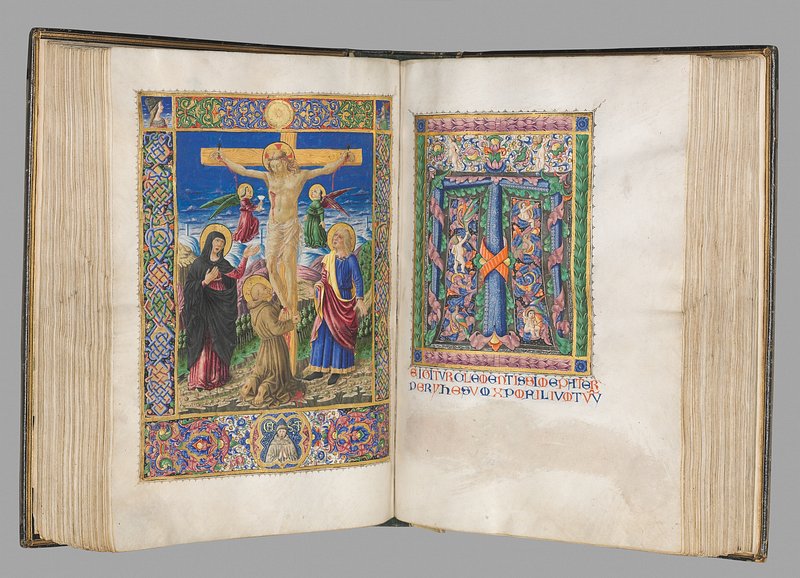 T
E IGITVR CLEMENTISSIME PATER
PER YHESVM XPM FILIVM TVV